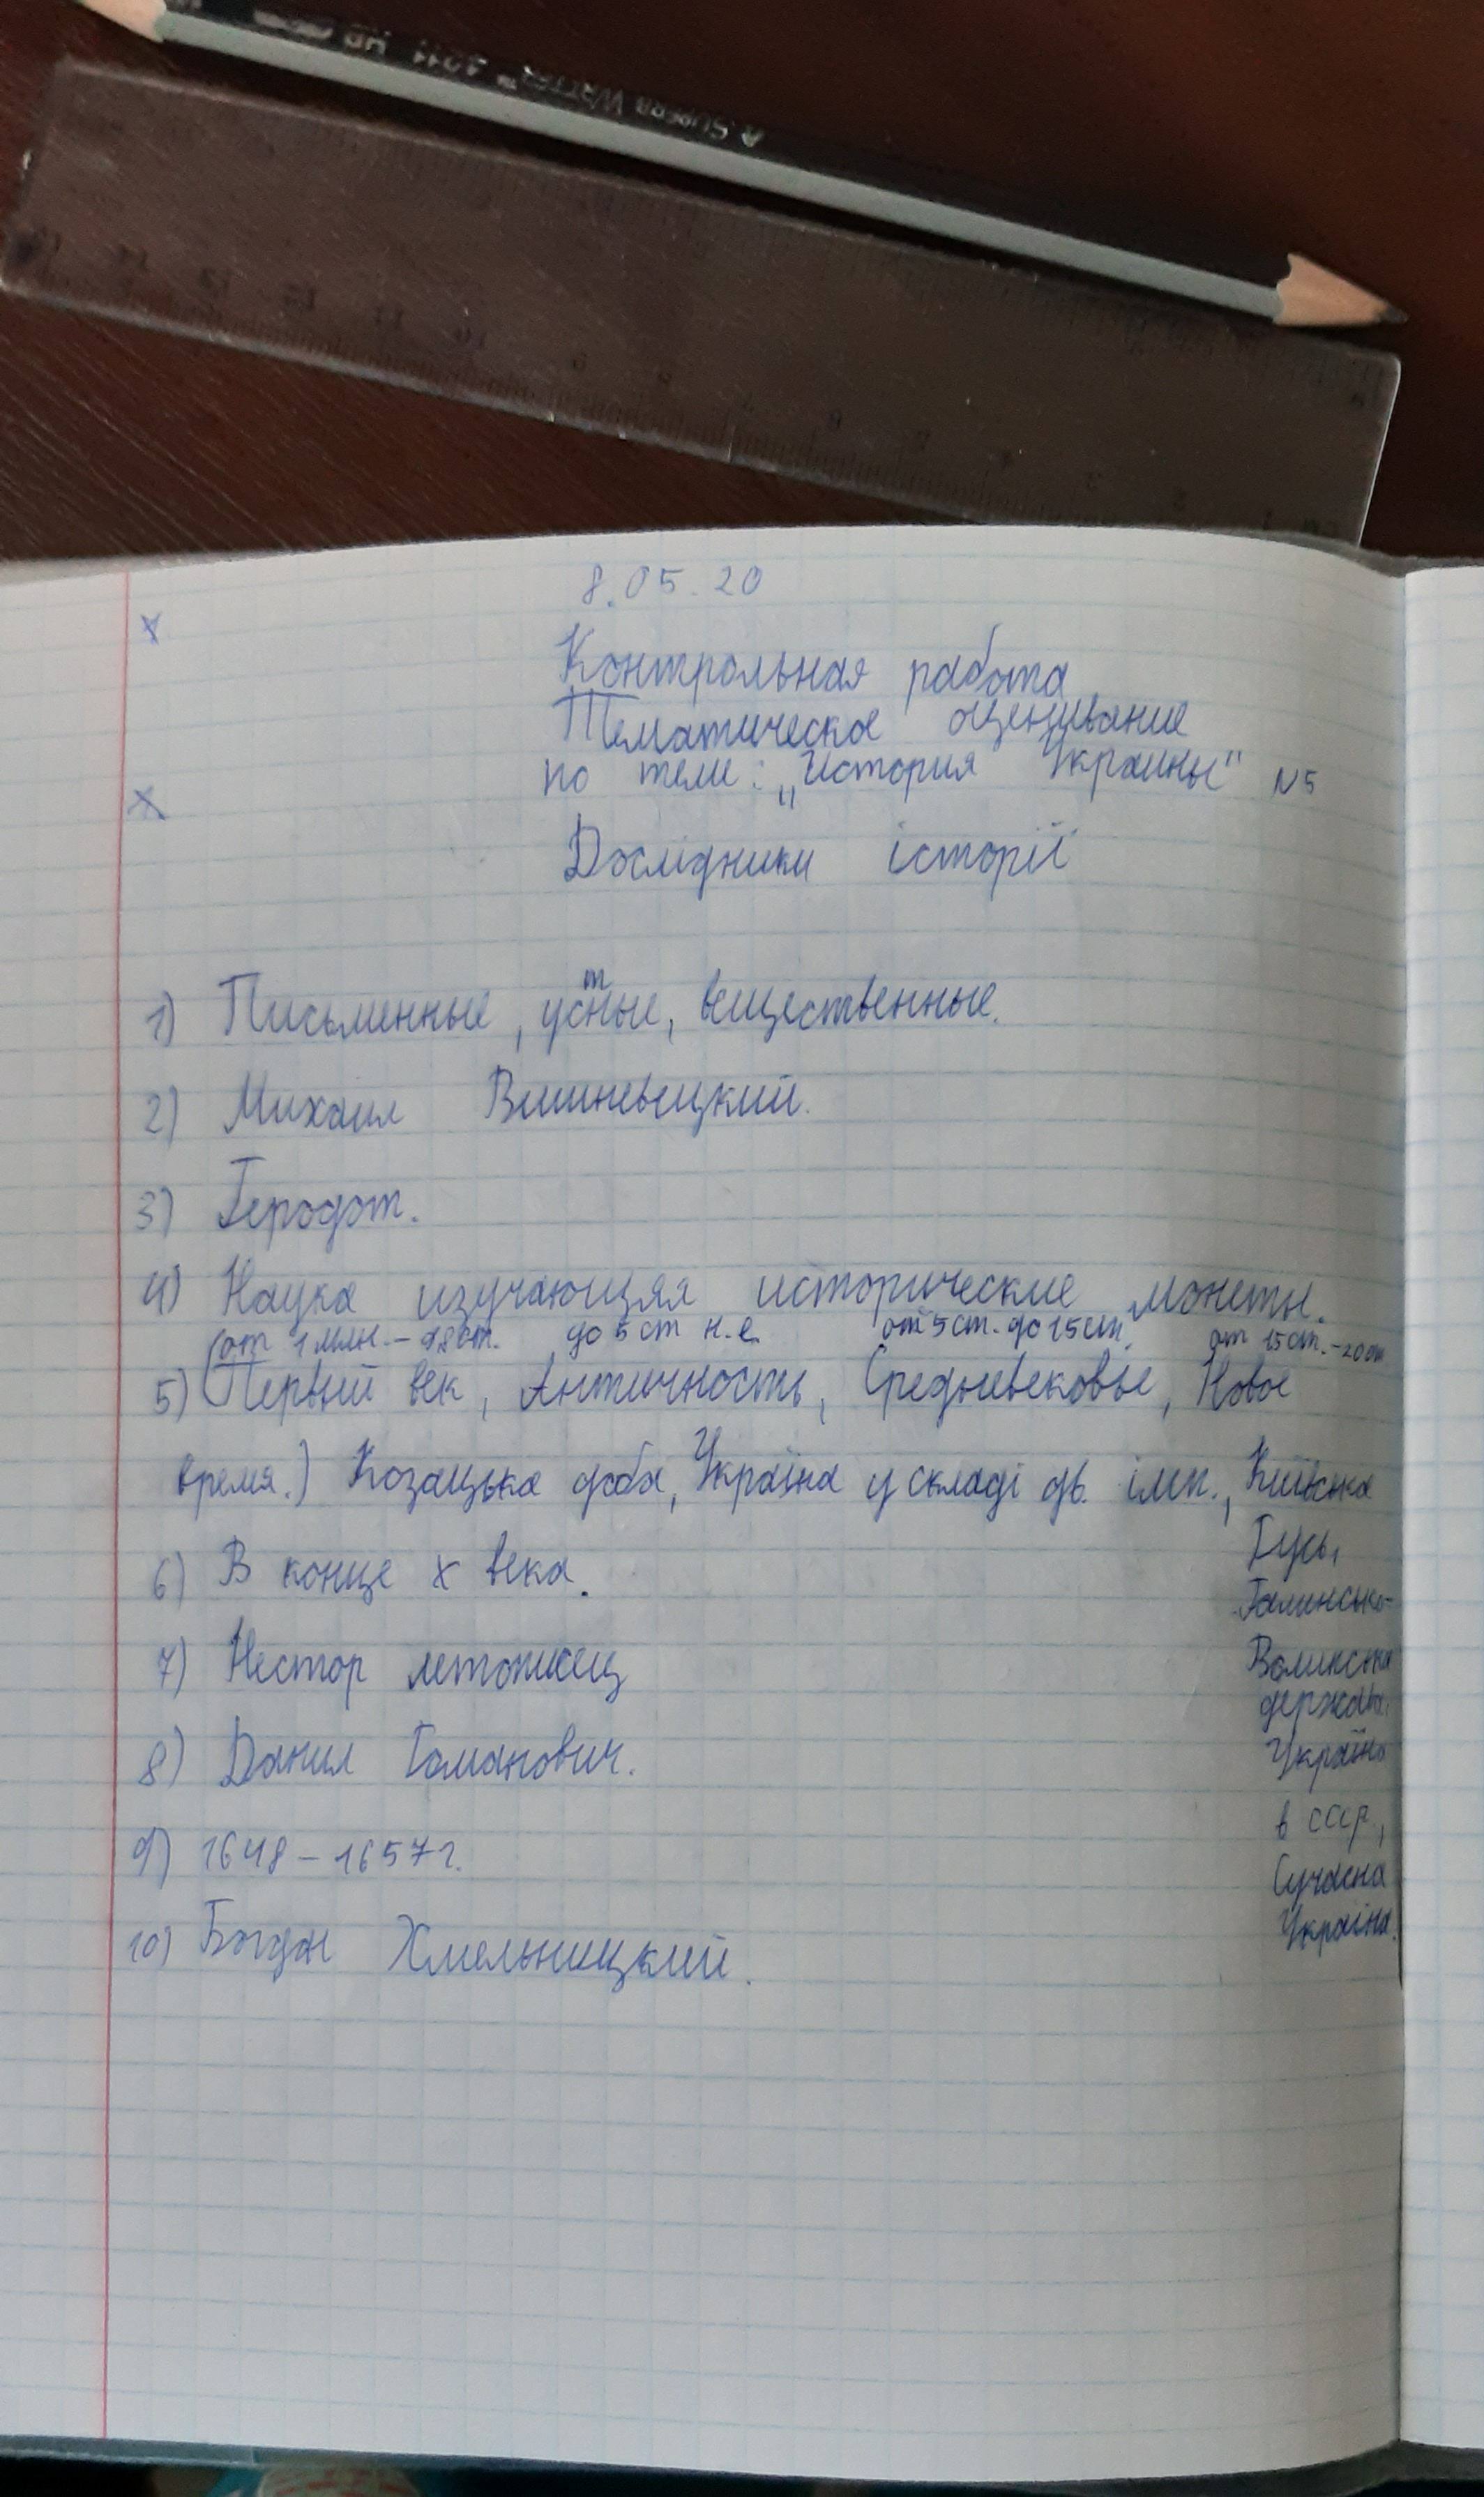 A. SUPERB WRITER™ 4211 HB
8.05.20
Контрольная работа
Тематическое оценивание
по теме: „История Украины" N5
Дослідники історії
1) Письменные, устные, вещественные.
2) Михаил
3) Геродот.
4) Наука изучающяя исторические монеты.
(от 1 млн. – до 5 ст н.е. от 5 ст. до 15 ст. от 15 ст. – 20 ст
5) (Первый век, Античность, Средневековье, Новое
время.) Козацька доба, Україна у складі дв. імп., Київська
Русь,
Галицько-
Волинська
держава,
Україна
в СССР,
Сучасна
Україна.
6) В конце X века.
7) Нестор летописец
8) Данил Романович.
9) 1648 – 1657 г.
10) Богдан Хмельницкий.